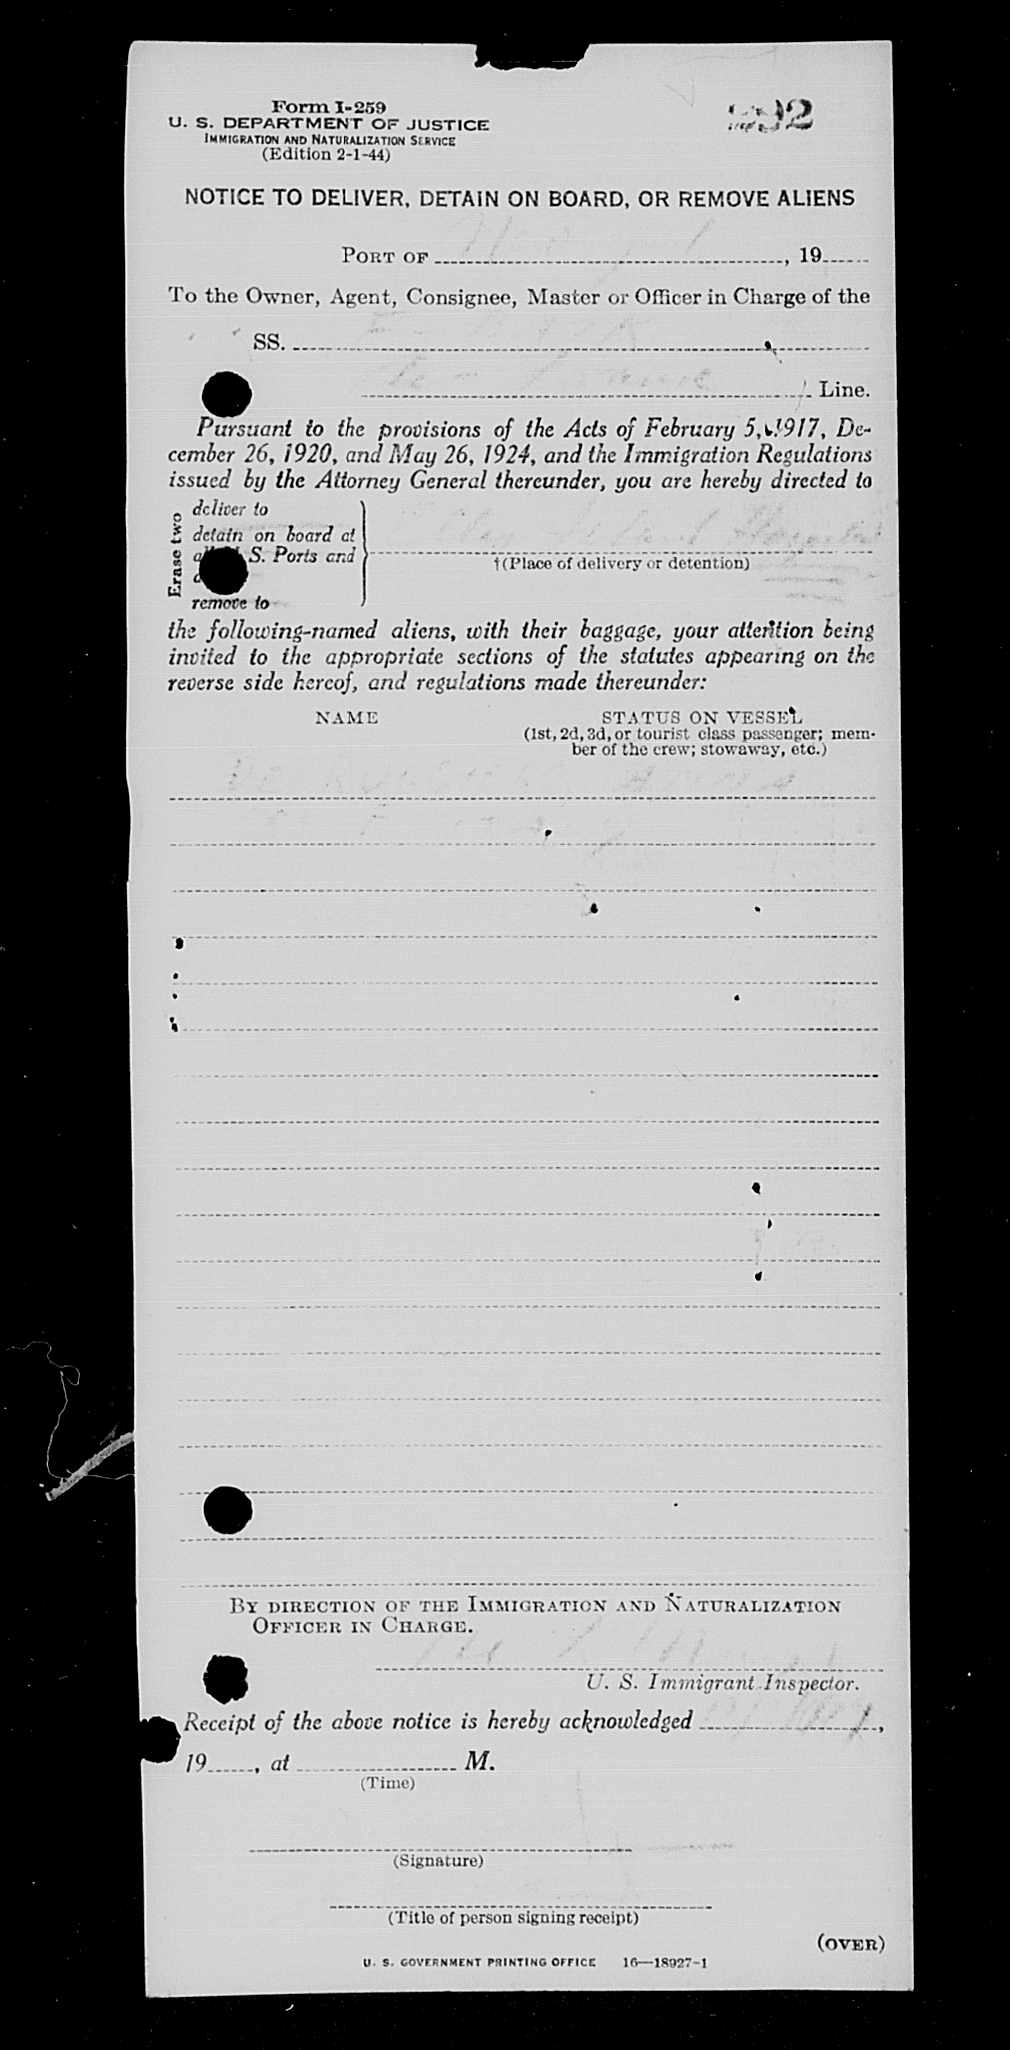 Form I-259
U. S. DEPARTMENT OF JUSTICE
IMMIGRATION AND NATURALIZATION SERVICE
(Edition 2-1-44)
292
NOTICE TO DELIVER, DETAIN ON BOARD, OR REMOVE ALIENS
PORT OF , 19
To the Owner, Agent, Consignee, Master or Officer in Charge of the
SS.
Line.
Pursuant to the provisions of the Acts of February 5, 1917, De-
cember 26, 1920, and May 26, 1924, and the Immigration Regulations
issued by the Attorney General thereunder, you are hereby directed to
Erase two
deliver to
detain on board at
S. Ports and
remove to
†(Place of delivery or detention)
the following-named aliens, with their baggage, your attention being
invited to the appropriate sections of the statutes appearing on the
reverse side hereof, and regulations made thereunder:
NAME
STATUS ON VESSEL
(1st, 2d, 3d, or tourist class passenger; mem-
ber of the crew; stowaway, etc.)
BY DIRECTION OF THE IMMIGRATION AND NATURALIZATION
OFFICER IN CHARGE.
U. S. Immigrant Inspector.
Receipt of the above notice is hereby acknowledged ,
19 , at M.
(Time)
(Signature)
(Title of person signing receipt)
(OVER)
U. S. GOVERNMENT PRINTING OFFICE 16—18927-1